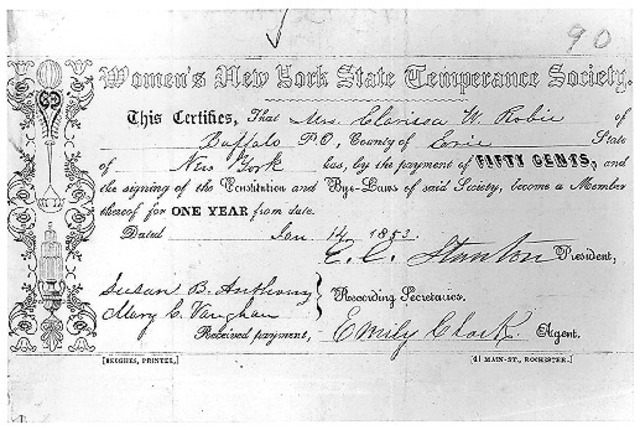 90
Women's New York State Temperance Society.
This Certifies, That Mrs. Clarissa W. Robie of
Buffalo P.O, County of Erie State
of New York has, by the payment of FIFTY CENTS, and
the signing of the Constitution and Bye-Laws of said Society, become a Member
thereof for ONE YEAR from date.
Dated Jan 14 1853.
E. C. Stanton President,
Susan B. Anthony
Mary C. Vaughan } Recording Secretaries.
Received payment, Emily Clark Agent.
[ PRINTER,] [41 MAIN-ST., ROCHESTER.]